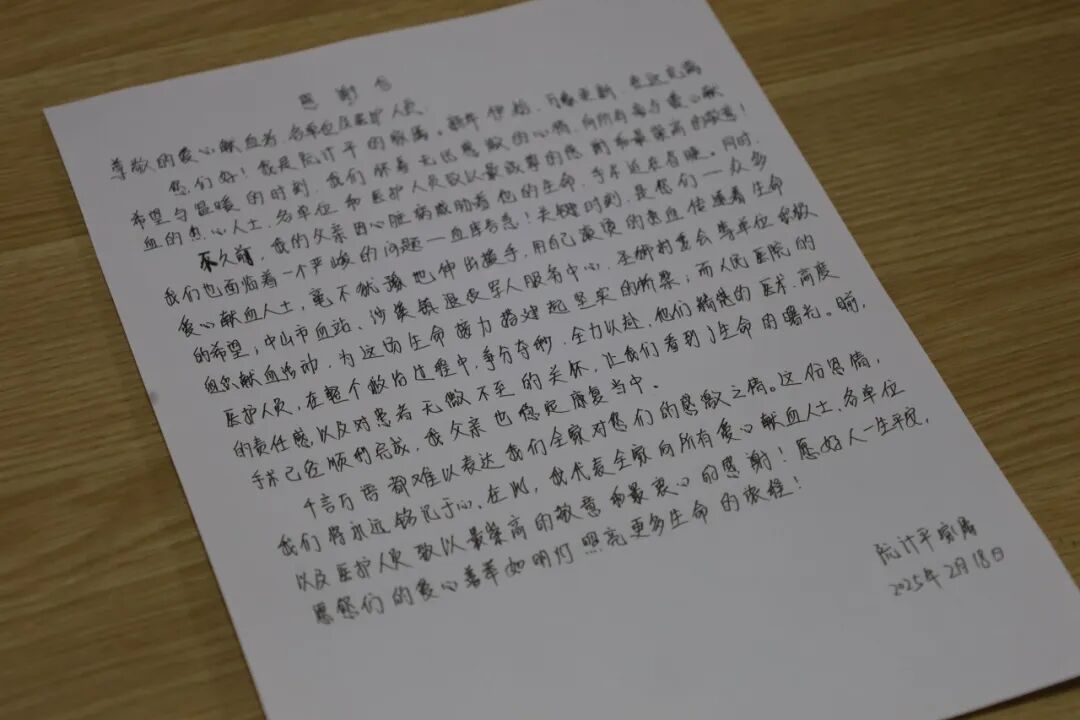 感谢信
尊敬的爱心献血者、各单位及医护人员：
您们好！我是阮计平的家属。新年伊始，万象更新，在这充满
希望与温暖的时刻，我们怀着无比感激的心情，向所有参与爱心献
血的热心人士、各单位和医护人员致以最诚挚的感谢和最崇高的敬意！
不久前，我的父亲因心脏病威胁着他的生命，手术迫在眉睫。同时，
我们也面临着一个严峻的问题——血库告急！关键时刻，是您们——众多
爱心献血人士，毫不犹豫地伸出援手，用自己滚烫的热血传递着生命
的希望；中山市血站、沙溪镇退役军人服务中心、圣狮村委会等单位积极
组织献血活动，为这场生命接力搭建起坚实的桥梁；而人民医院的
医护人员，在整个救治过程中，争分夺秒，全力以赴，他们精湛的医术、高度
的责任感以及对患者无微不至的关怀，让我们看到了生命的曙光。目前，
手术已经顺利完成，我父亲也稳定康复当中。
千言万语都难以表达我们全家对您们的感激之情。这份恩情，
我们将永远铭记于心，在此，我代表全家向所有爱心献血人士、各单位
以及医护人员致以最崇高的敬意和最衷心的感谢！愿好人一生平安，
愿您们的爱心善举如明灯照亮更多生命的旅程！
阮计平家属
2025年2月18日